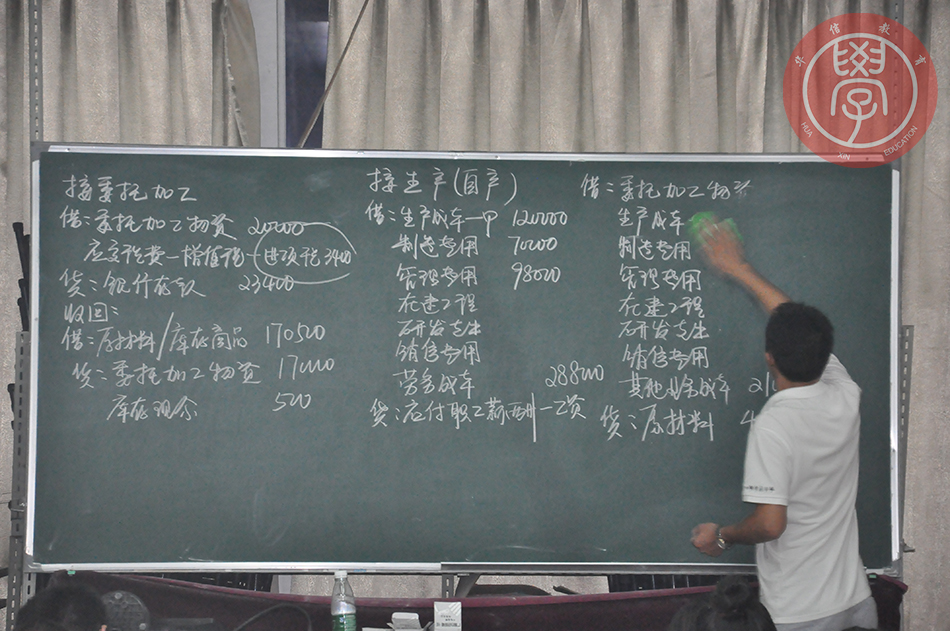 接委托加工
借：委托加工物资 20000
应交税费一增值税一进项税3400
贷：银行存款 23400
收回：
借：原材料/库存商品 170500
贷：委托加工物资 170000
库存现金 500
接生产(自产)
借：生产成本一甲 120000
制造专用 70000
管理专用 98000
在建工程
研发支出
销售专用
劳务成本 288000
贷：应付职工薪酬一工资
借：委托加工物资
生产成本
制造专用
管理专用
在建工程
研发支出
销售专用
其他业务成本 21
贷：原材料 4
华信教育
學
HUA XIN EDUCATION